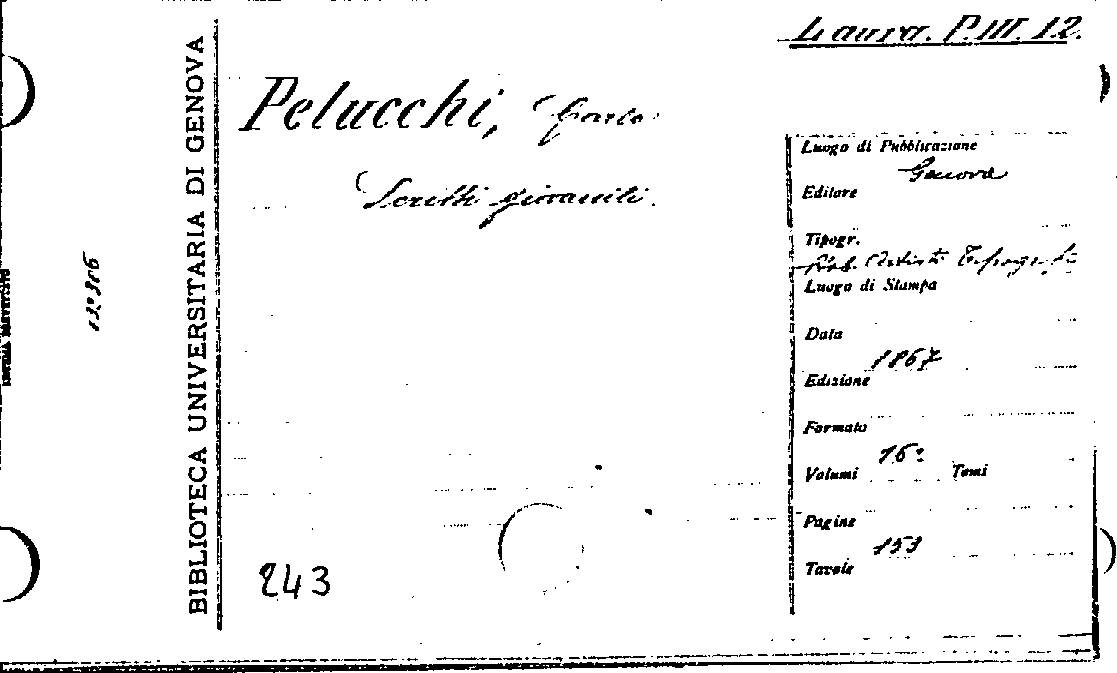 Laura. P. III. 12.
Pelucchi, Carlo
Scritti giovanili.
BIBLIOTECA UNIVERSITARIA DI GENOVA
Luogo di Pubblicazione
Genova
Editore
Tipogr.
Artisti Tipografi
Luogo di Stampa
Data
1867
Edizione
Formato
16°
Volumi Tomi
Pagine
153
Tavole
243